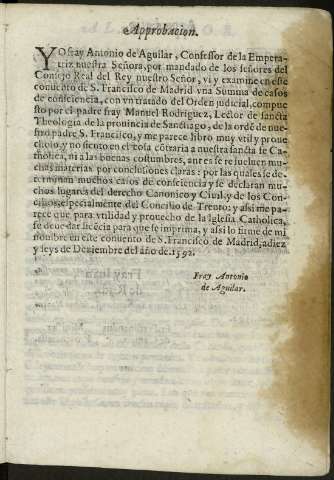 Approbacion.
YO fray Antonio de Aguilar, Confessor de la Empera-
triz nuestra Señora, por mandado de los señores del
Consejo Real del Rey nuestro Señor, vi y examine en este
conuento de S. Francisco de Madrid vna Summa de casos
de consciencia, con vn tratado del Orden judicial, compue
sto por el padre fray Manuel Rodriguez, Lector de sancta
Theologia de la prouincia de Sanctiago, de la ordē de nue-
stro padre S. Francisco, y me parece libro muy vtil y proue
choso, y no siento en el cosa cōtraria a nuestra sancta fe Ca-
tholica, ni a las buenas costumbres, antes se resueluen mu-
chas materias por conclusiones claras: por las quales se de-
terminan muchos casos de consciencia y se declaran mu-
chos lugares del derecho Canonico y Ciuil, y de los Con-
cilios, especialmente del Concilio de Trento: y assi me pa-
rece que para vtilidad y prouecho de la Iglesia Catholica,
se deue dar licēcia para que se imprima, y assi lo firme de mi
nombre en este conuento de S. Francisco de Madrid, a diez
y seys de Deziembre del año de. 1592.
Fray Antonio
de Aguilar.